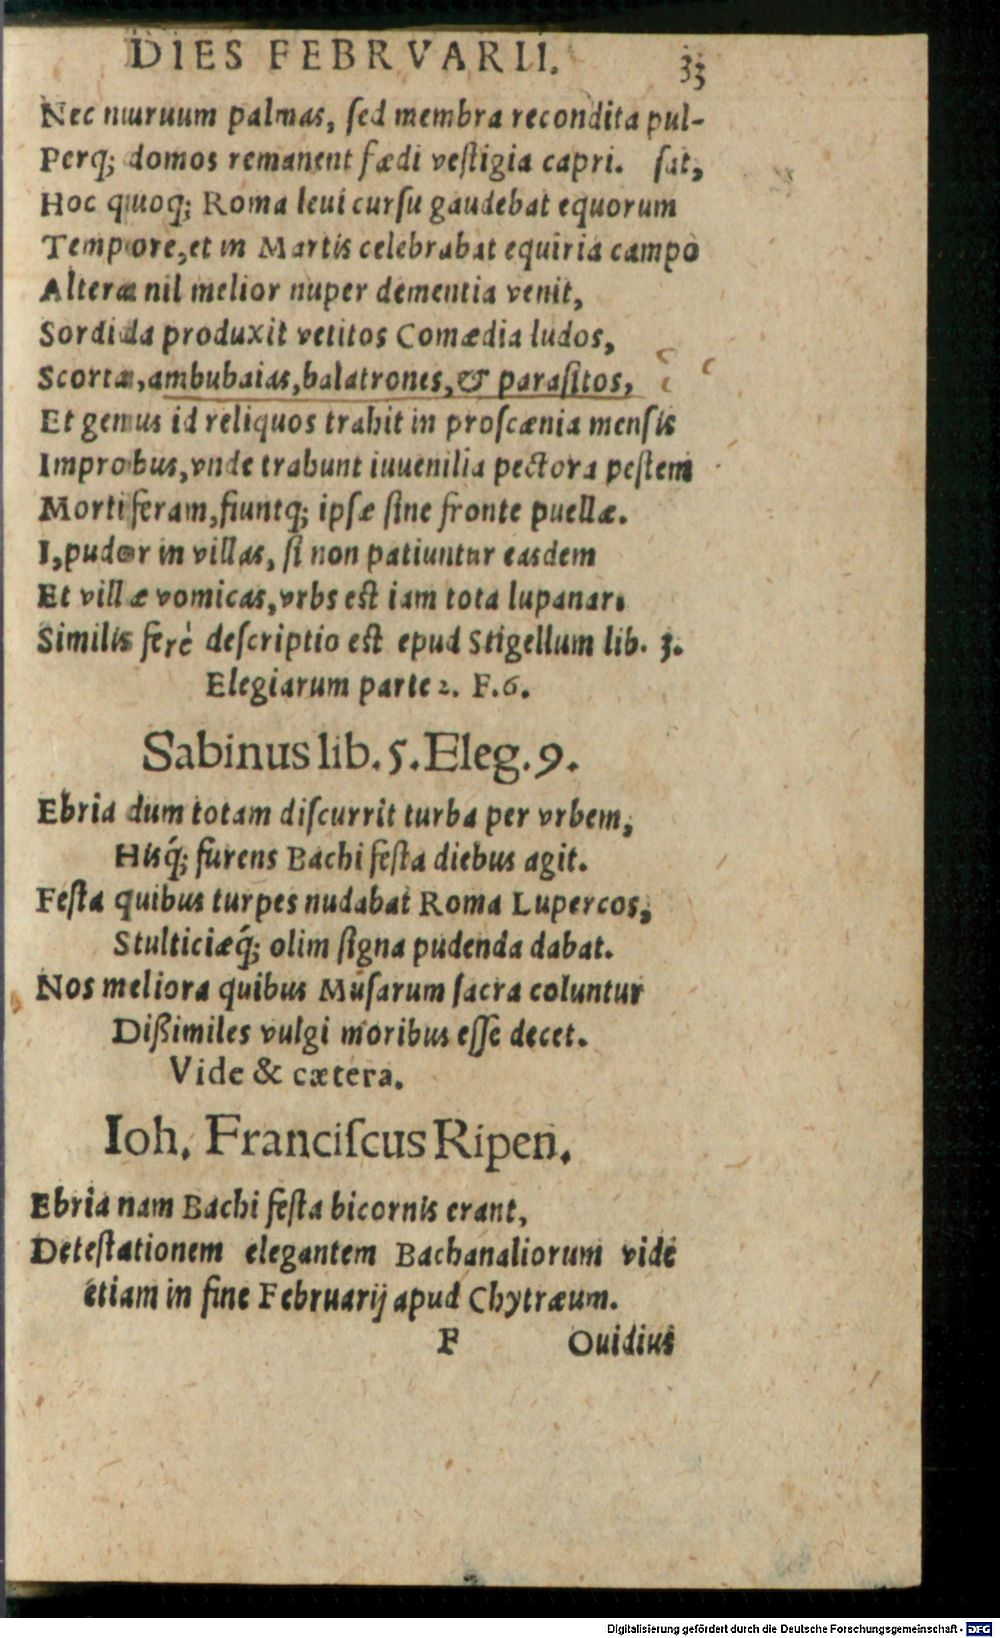 DIES FEBRVARII. 33
Nec nuruum palmas, ſed membra recondita pul-
Perq; domos remanent fœdi veſtigia capri. ſat,
Hoc quoq; Roma leui curſu gaudebat equorum
Tempore, et in Martis celebrabat equiria campo
Alteræ nil melior nuper dementia venit,
Sordida produxit vetitos Comœdia ludos,
Scorta, ambubaias, balatrones, & paraſitos,
Et genus id reliquos trahit in proſcænia menſis
Improbus, vnde trahunt iuuenilia pectora peſtem
Mortiferam, fiuntq; ipſæ ſine fronte puellæ.
I, pudor in villas, ſi non patiuntur easdem
Et villæ vomicas, vrbs est iam tota lupanar.
Similis ferè deſcriptio est epud Stigellum lib. 3.
Elegiarum parte 2. F.6.
Sabinus lib. 5. Eleg. 9.
Ebria dum totam diſcurrit turba per vrbem,
Hisq́; furens Bachi feſta diebus agit.
Feſta quibus turpes nudabat Roma Lupercos,
Stulticiæq́; olim ſigna pudenda dabat.
Nos meliora quibus Muſarum ſacra coluntur
Dißimiles vulgi moribus eſſe decet.
Vide & cætera.
Ioh. Franciſcus Ripen.
Ebria nam Bachi feſta bicornis erant,
Deteſtationem elegantem Bachanaliorum vide
etiam in fine Februarij apud Chytræum.
F Ouidius
Digitalisierung gefördert durch die Deutsche Forschungsgemeinschaft - DFG